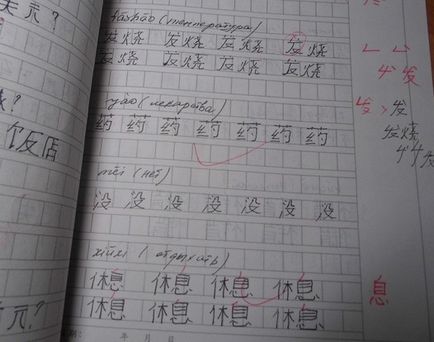 美元?
fāshāo (температура)
发烧 发烧 发烧 发烧
发烧 发烧 发烧 发烧
yào (лекарства)
药 药 药 药 药 药 药
饭店
méi (нет)
没 没 没 没 没 没 没
xiūxi (отдыхать)
休息 休息 休息 休息
休息 休息 休息 休息
元?
年 月 日
发
发 > 发
发烧
息